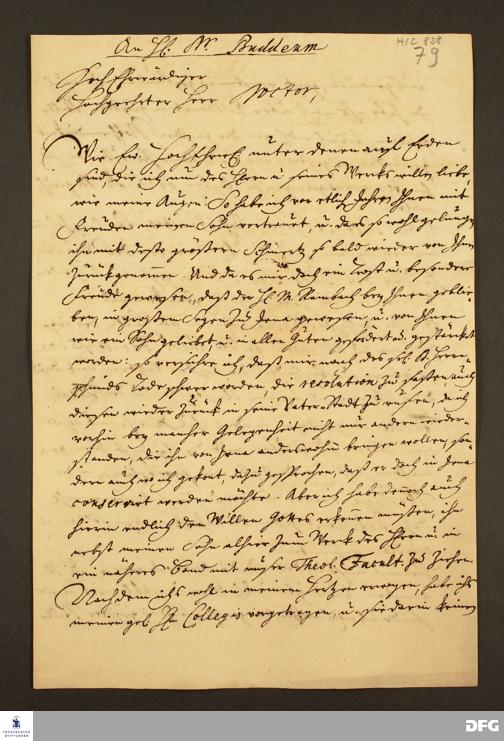 An H. Dr. Buddeum
H/C 838
79
HochEhrwürdiger
Hochgeehrter Herr Doctor,
Wie Ew. HochEhrw. unter denen auf Erden
sind, die ich um des Herrn u. seines Wercks willen liebe,
wie meine Augen: So habe ich vor etlich Jahren Ihnen mit
Freuden meinen Sohn vertrauet, u. da es so wohl gelungen
ihn mit desto größern Schmertz so bald wieder von Ihnen
zurückgenommen. Und da es mir doch ein Trost u. besondere
Freude gewesen, daß der H. M. Rambach bey Ihnen geblie-
ben, in großem Segen zu Jena gewesen, u. von Ihnen
wie ein Sohn geliebet u. in allem Guten gefördert u. gestärcket
worden: so versichere ich, daß mir nach des sel. D. Herrn-
schmids Tode schwer worden die resolution zu faßen, auch
diesen wieder zurück in seine Vater-Stadt zu rufen, da ich
vorhin bey mancher Gelegenheit nicht nur andern wieder-
standen, die ihn von Jena anderswohin bringen wollen, son-
dern auch wo ich gekont, dahin gesprochen, daß er doch in Jena
conserviret werden möchte. Aber ich habe dennoch auch
hierin endlich den Willen Gottes erkennen müßen, ihn
nebst meinem Sohn alhier zum Werck des Herrn u. in
ein näheres Band mit unser Theol. Facult. zu ziehen.
Nachdem ichs wohl in meinem Hertzen erwogen, habe ichs
meinen geb. Hn. Collegis vorgetragen, u. sie darin keinen
FRANCKESCHE
STIFTUNGEN
DFG